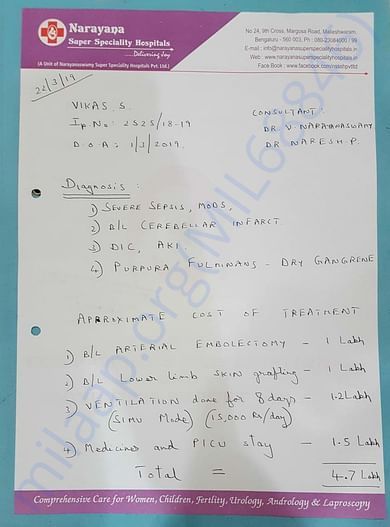 Narayana
Super Speciality Hospitals
...Delivering Joy
(A Unit of Narayanaswamy Super Speciality Hospitals Pvt. Ltd.)
No 24, 9th Cross, Margosa Road, Malleshwaram,
Bengaluru - 560 003, Ph : 080-23084000 / 99
E-mail : info@narayanasuperspecialityhospitals.in
Web : www.narayanasuperspecialityhospitals.in
Face Book : www.facebook.com/nsshpvtltd
22/3/19
VIKAS. S.
Ip. No: 2525/18-19
D.O.A: 1/3/2019.
CONSULTANT:
DR. V. NARAYANASWAMY
DR NARESH. P.
Diagnosis :
1) SEVERE SEPSIS, MODS,
2) B/L CEREBELLAR INFARCT.
3) DIC, AKI.
4) PURPURA FULMINANS - DRY GANGRENE
APPROXIMATE COST OF TREATMENT
1) B/L ARTERIAL EMBOLECTOMY - 1 Lakh
2) B/L Lower limb SKIN grafting - 1 Lakh
3) VENTILATION done for 8 days - 1.2 Lakh
(SIMV Mode) (15,000 Rs/day)
4) Medicines and PICU stay - 1.5 Lakh
Total = 4.7 Lakh
Comprehensive Care for Women, Children, Fertlity, Urology, Andrology & Laproscopy